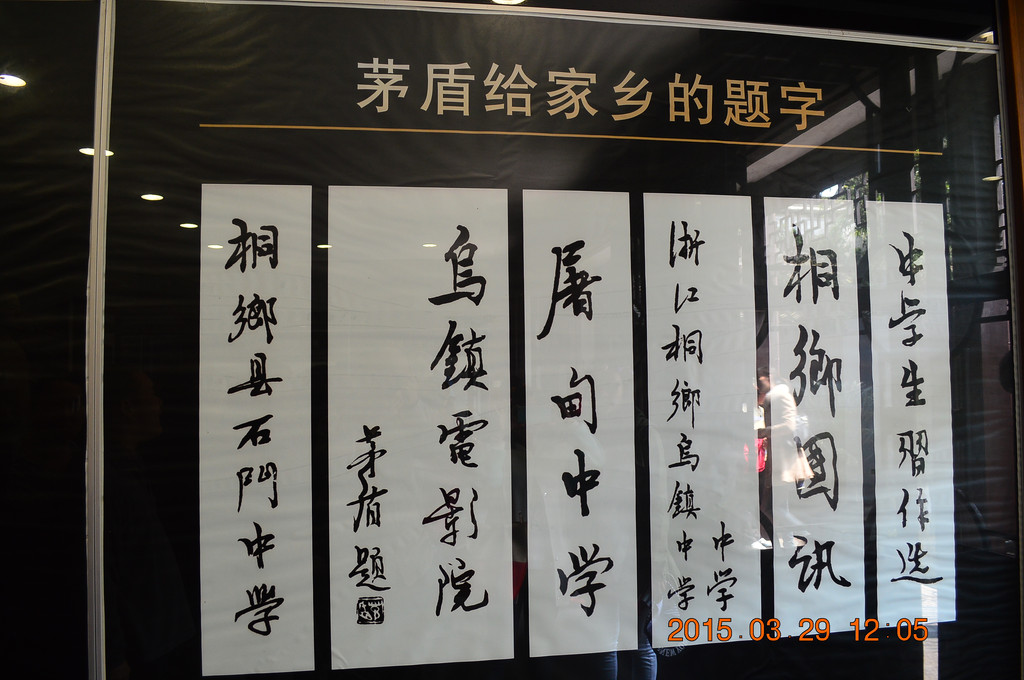 茅盾给家乡的题字
桐鄉县石门中学
烏鎮電影院
茅盾題
屠甸中学
浙江桐鄉烏鎮中学
中学
桐鄉图讯
中学生習作选
2015.03.29 12:05